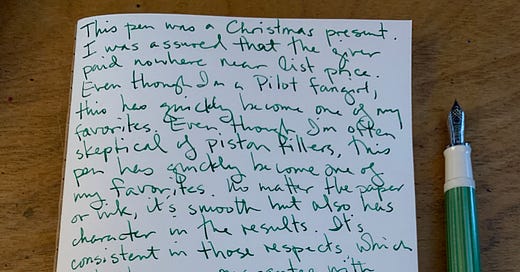 This pen was a Christmas present.
I was assured that the giver
paid nowhere near list price.
Even though I'm a Pilot fangirl,
this has quickly become one of my
favorites. Even though I'm often
skeptical of piston fillers, this
pen has quickly become one of
my favorites. No matter the paper
or ink, it's smooth but also has
character in the results. It's
consistent in those respects which